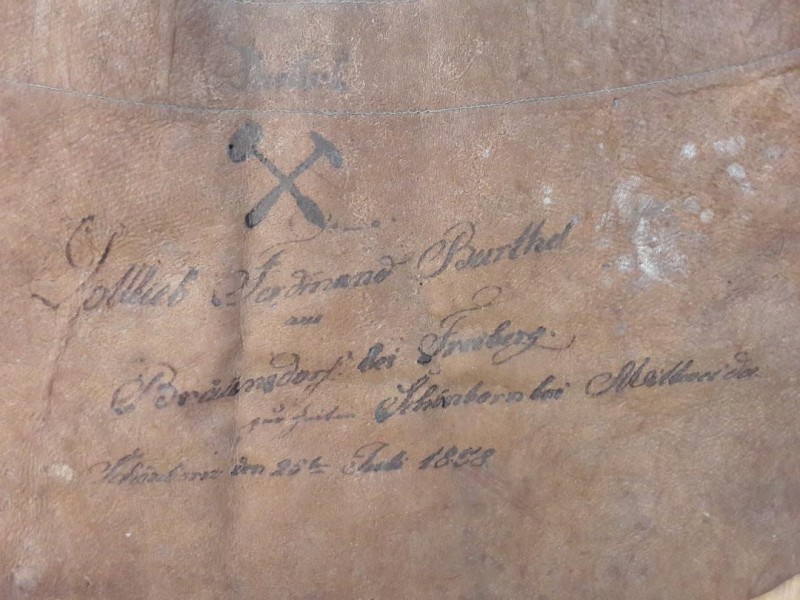 Barthel
Ferdinand Barthel
aus
Bräunsdorf bei Freiberg.
zur Zeiten Schönborn bei Mittweida
Schönborn den 25ten Juli 1858